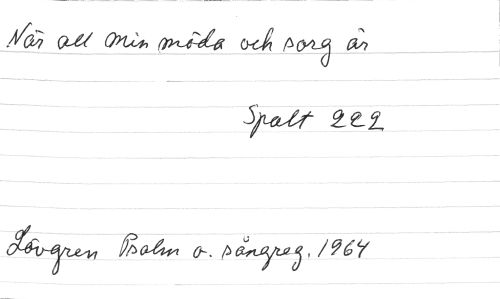 När all min möda och sorg är
Spalt 222
Lövgren Psalm o. sångreg. 1964